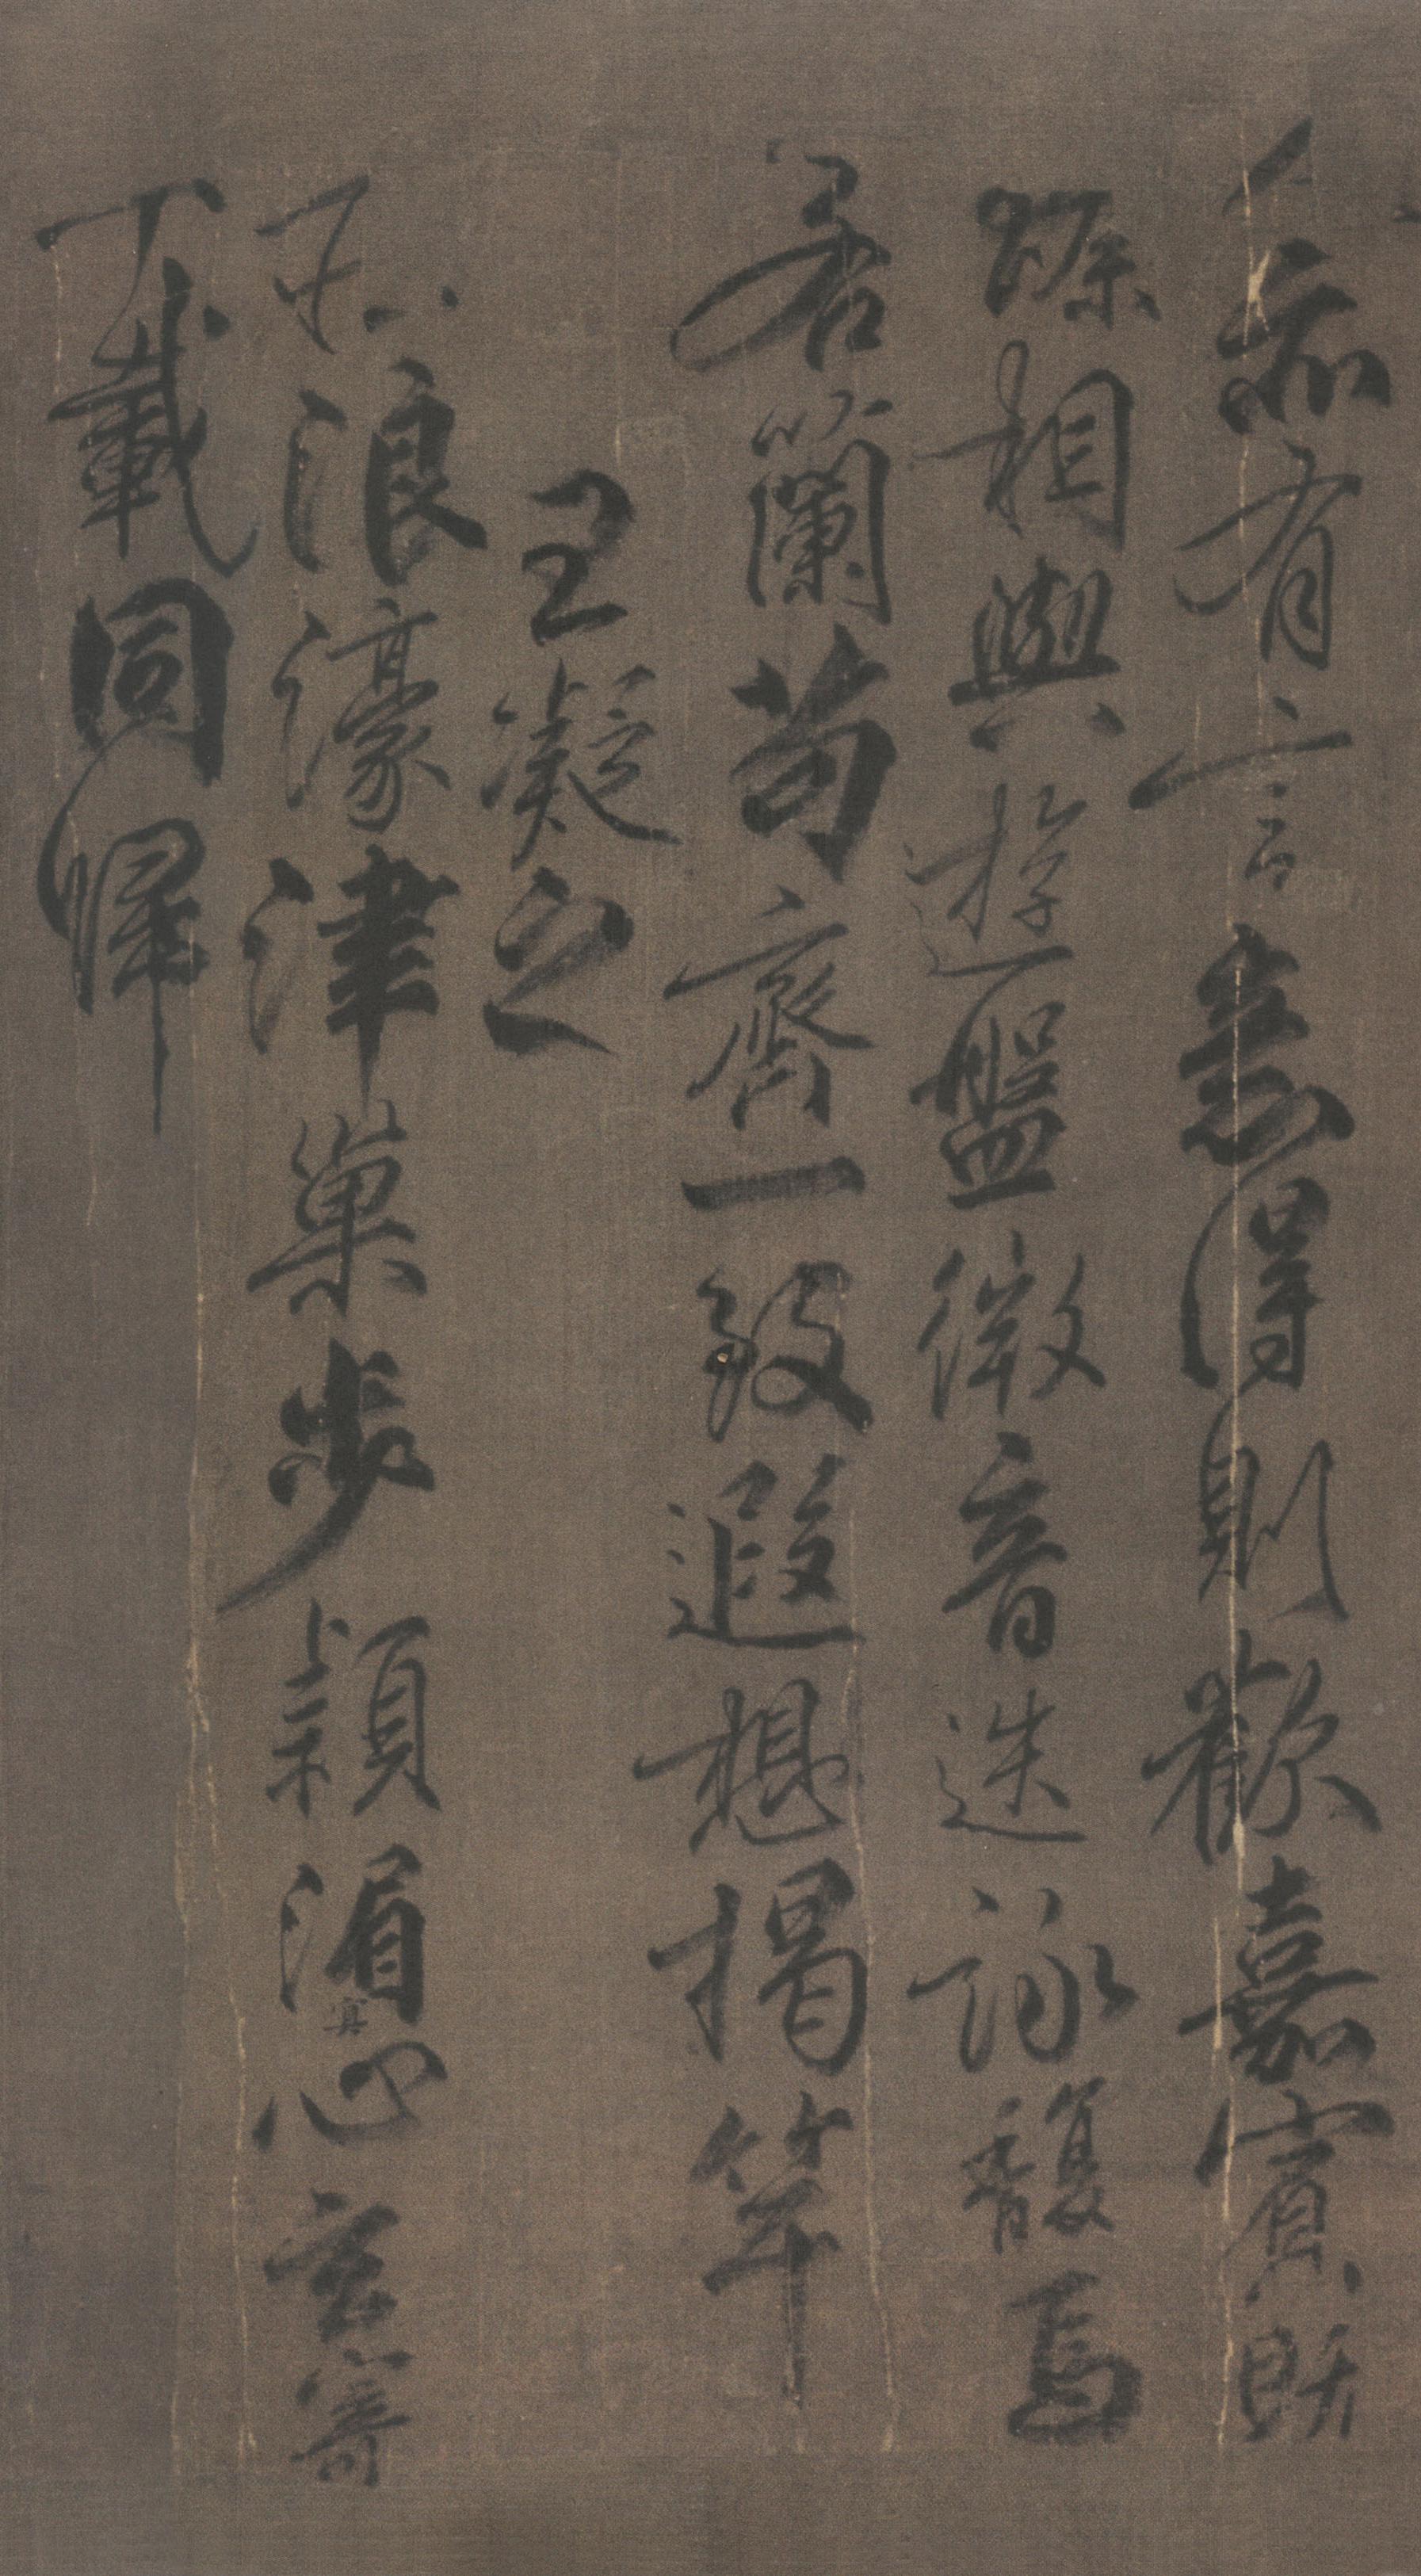 人亦有言意得則歡嘉賓既
臻相與遊盤微音迭詠馥焉
若蘭苟齊一致遐想揭竿
王凝之
庄浪濠津巢步潁湄冥心玄寄
千載同歸